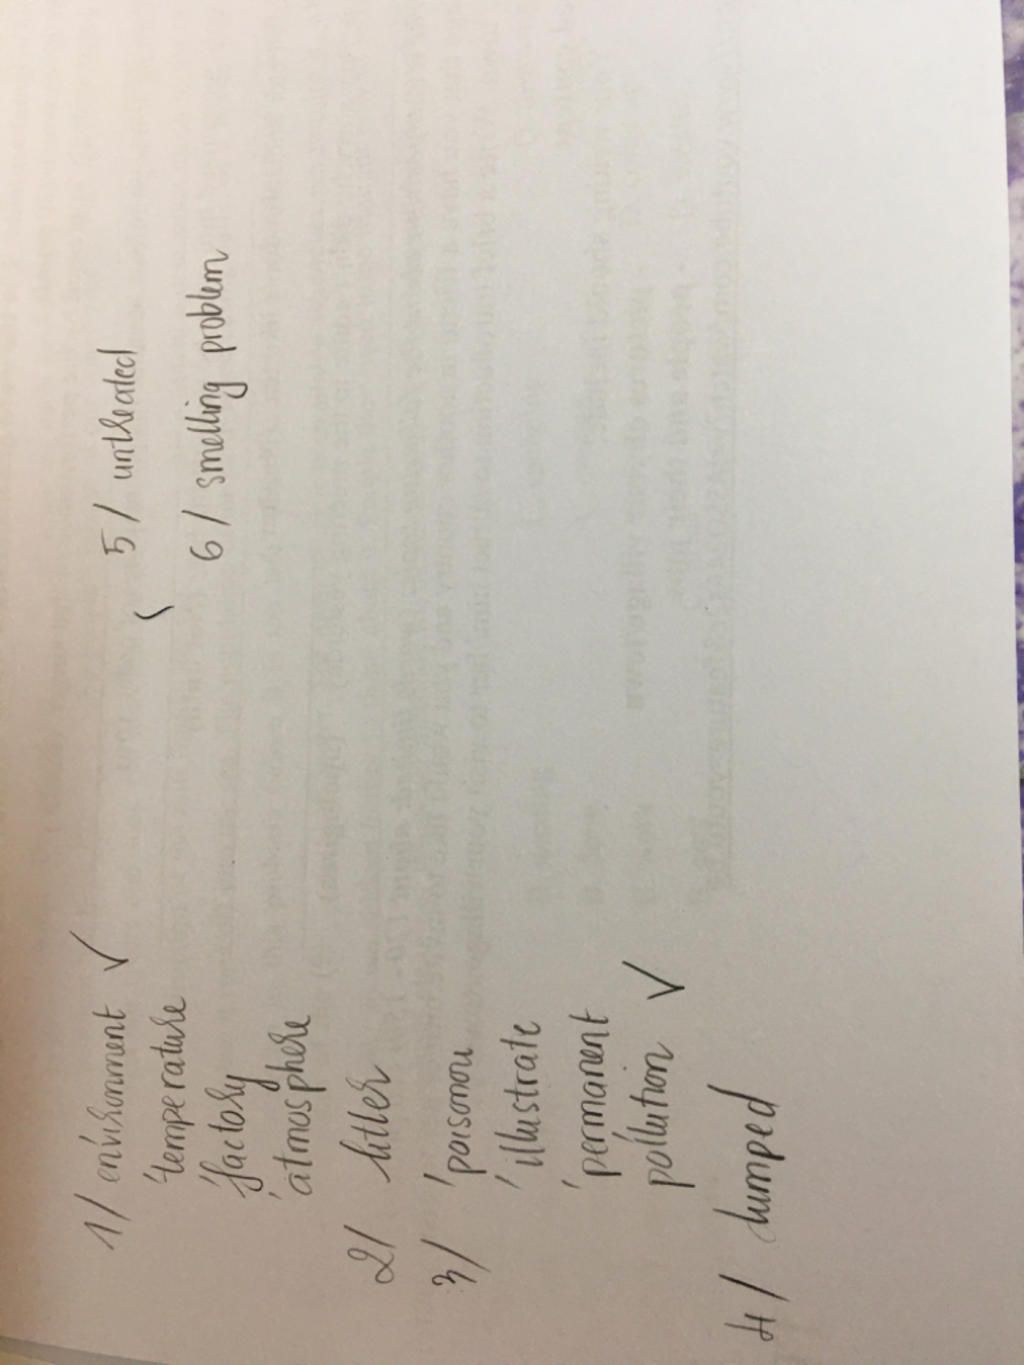 1/ en'vironment ✓
'temperature
'factory
'atmosphere
2/ litter
3/ 'poisonou
'illustrate
'permanent
po'llution ✓
4/ dumped
5/ untreated
6/ smelling problem